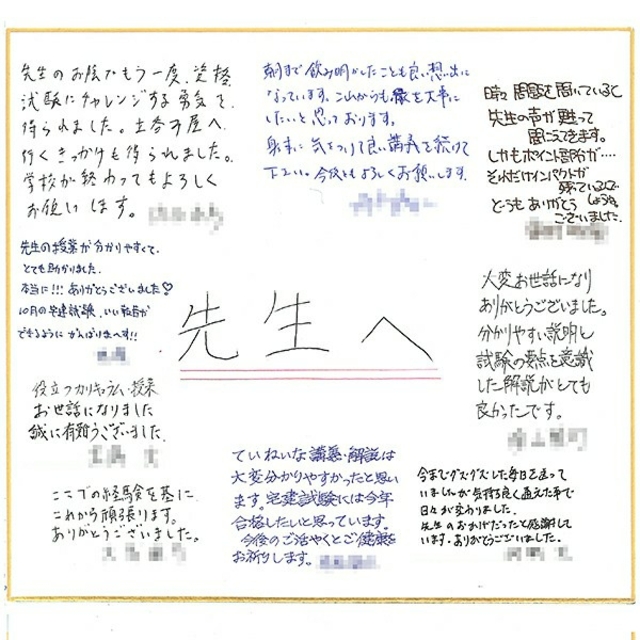 先生のお陰でもう一度、資格
試験にチャレンジする勇気を
得られました。土岐市屋へ
行くきっかけも得られました。
学校が終わってもよろしく
お願いします。
朝まで飲み明かしたことも良い想い出に
なっています。これからも縁を大事に
したいと思っております。
身体に気をつけて良い講義を続けて
下さい。今後ともよろしくお願いします。
時々問題を聞いていると
先生の声が甦って
聞こえてきます。
しかもポイント部分が‥‥
それだけインパクトが
残っているんで
しょうね
どうもありがとう
ございました。
先生の授業が分かりやすくて、
とても助かりました。
本当に!!!ありがとうございました♡
10月の宅建試験、いい報告が
できるようにがんばりまーす!!
先生へ
大変お世話になり
ありがとうございました。
分かりやすい説明と
試験の要点を意識
した解説がとても
良かったです。
役立つカリキュラム・授業
お世話になりました
誠に有難うございました。
ここでの経験を基に
これから頑張ります。
ありがとうございました。
ていねいな講義・解説は
大変分かりやすかったと思い
ます。宅建試験には今年
合格したいと思っています。
今後のご活やくとご健勝を
お祈りします。
今までグズグズした毎日を送って
いましたが気持ち良く通えた事で
日々が変わりました。
先生のおかげだったと感謝して
います。ありがとうございました。